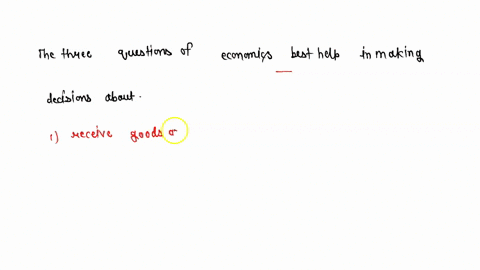 The three questions of economics best help in making
decisions about.
1) receive goods o